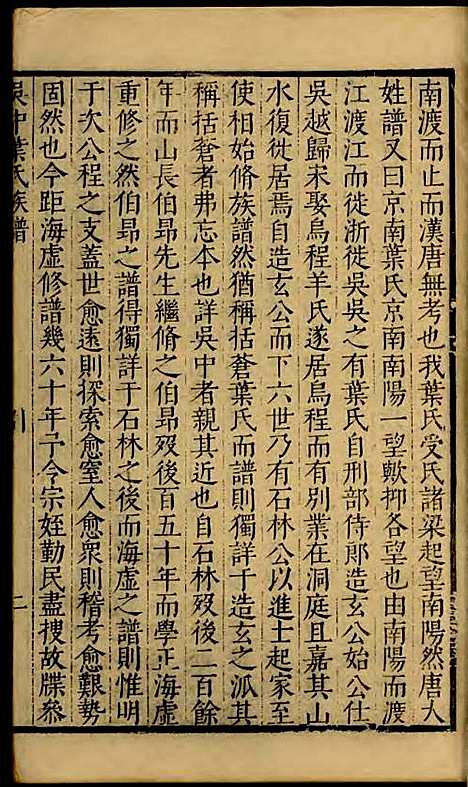 南渡而止而漢唐無考也我葉氏受氏諸梁起望南陽然唐人
姓譜又曰京南葉氏京南南陽一望歟抑各望也由南陽而渡
江渡江而徙浙徙吳吳之有葉氏自刑部侍郎造玄公始公仕
吳越歸宋娶烏程羊氏遂居烏程而有别業在洞庭且嘉其山
水復徙居焉自造玄公而下六世乃有石林公以進士起家至
使相始脩族譜然猶稱括蒼葉氏而譜則獨詳于造玄之派其
稱括蒼者弗忘本也詳吳中者親其近也自石林歿後二百餘
年而山長伯昂先生繼脩之伯昂歿後百五十年而學正海虛
重修之然伯昂之譜得獨詳于石林之後而海虛之譜則惟明
于次公程之支蓋世愈遠則探索愈窒人愈衆則稽考愈艱勢
固然也今距海虛修譜幾六十年予令宗姪勤民盡搜故牒參
吳中葉氏族譜
二